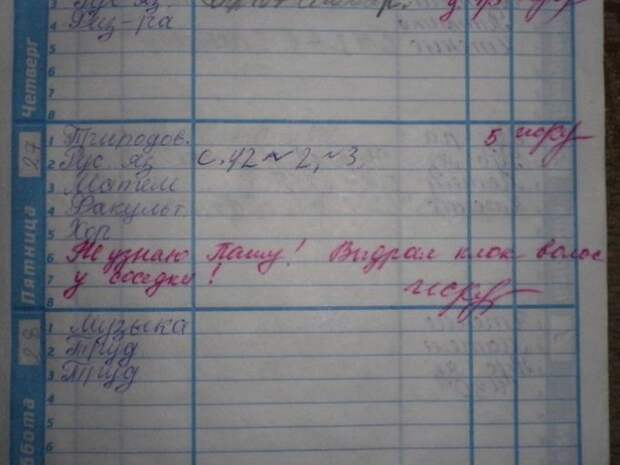 3 Рус яз.
4 Физ-ра
5
6
7
8
Четверг
27
1 Природов. 5
2 Рус яз с. 42 ~ 2, ~ 3,
3 Матем
4 Факульт.
5 Хор
6 Не узнаю Пашу! Выдрал клок волос
7 у соседки!
8
Пятница
28
1 Музыка
2 Труд
3 Труд
4
5
6
ббота